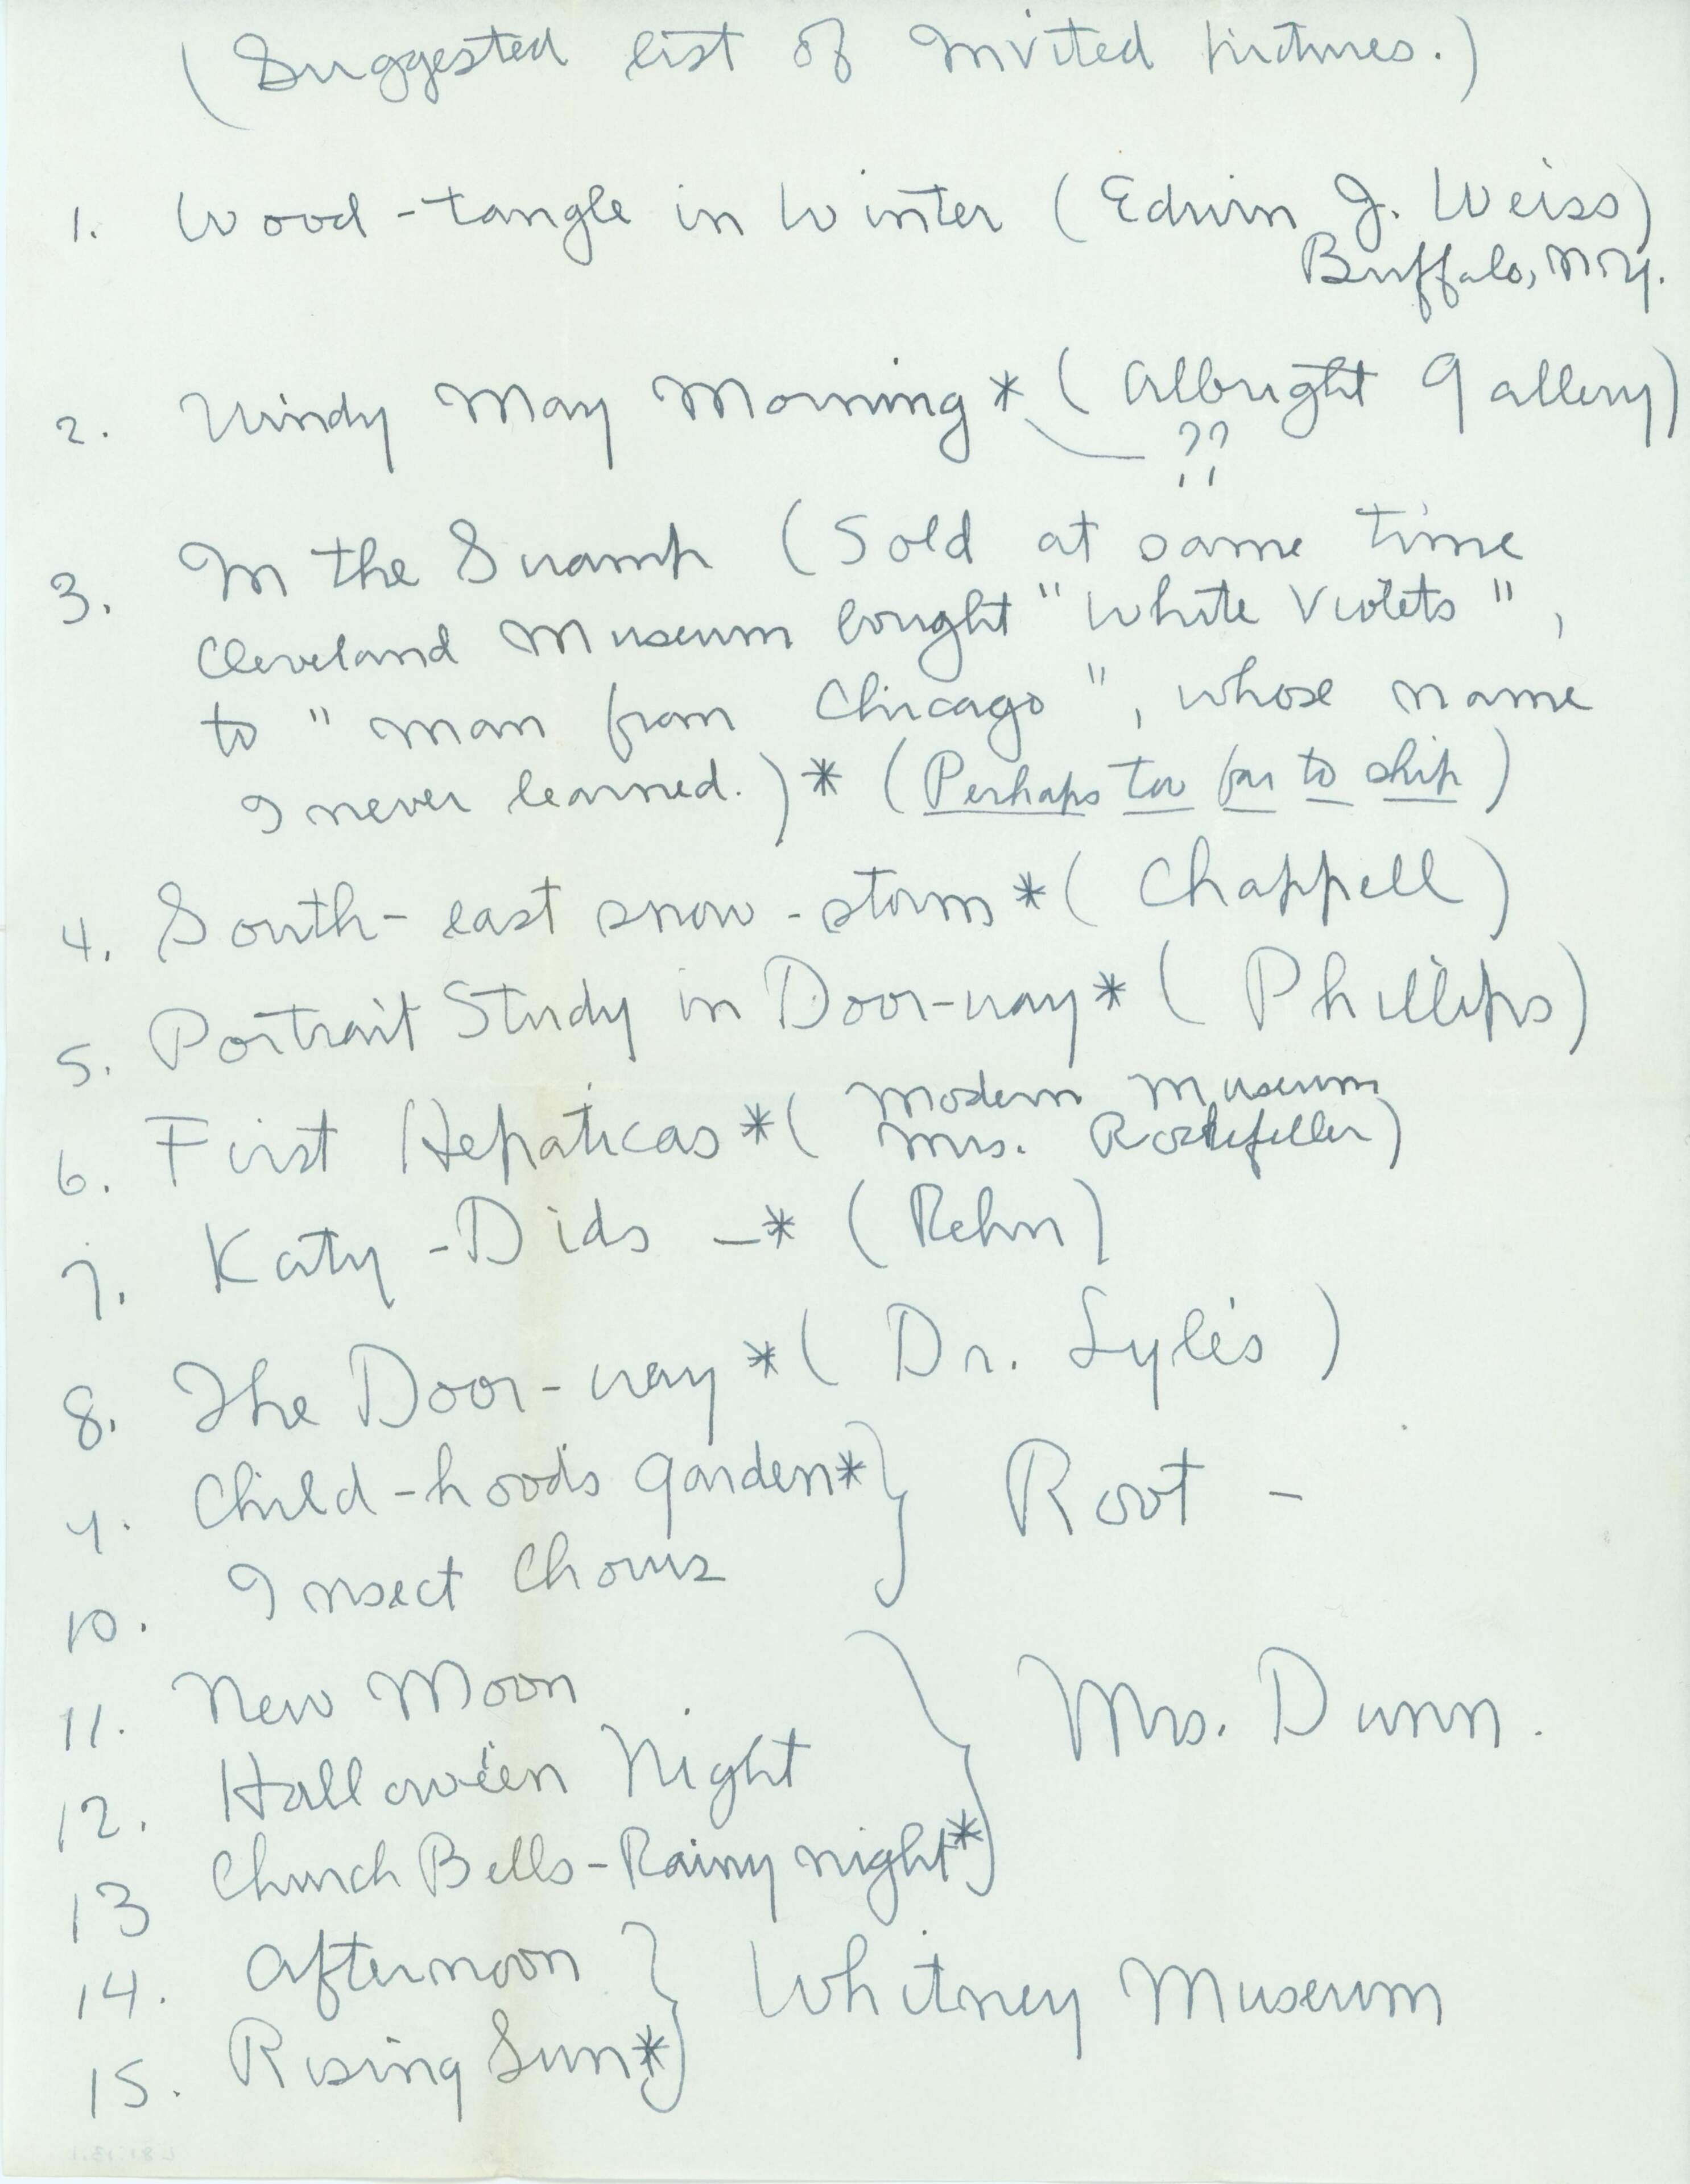 (Suggested list of invited pictures.)
1. Wood-tangle in Winter (Edwin J. Weiss)
Buffalo, N.Y.
2. Windy May Morning * (Albright Gallery)
??
3. In the Swamp (Sold at same time
Cleveland Museum bought "White Violets",
to "man from Chicago", whose name
I never learned.) * (Perhaps too far to ship)
4. South-east snow-storm * (Chappell)
5. Portrait Study in Door-way * (Phillips)
6. First Hepaticas * (Modern Museum
Mrs. Rockefeller)
7. Katy-Dids - * (Rehn)
8. The Door-way * (Dr. Lyle's)
9. Child-hood's Garden * } Root -
10. Insect Chorus
11. New Moon } Mrs. Dunn.
12. Hallowe'en Night
13 Church Bells - Rainy night *
14. Afternoon } Whitney Museum
15. Rising Sun *